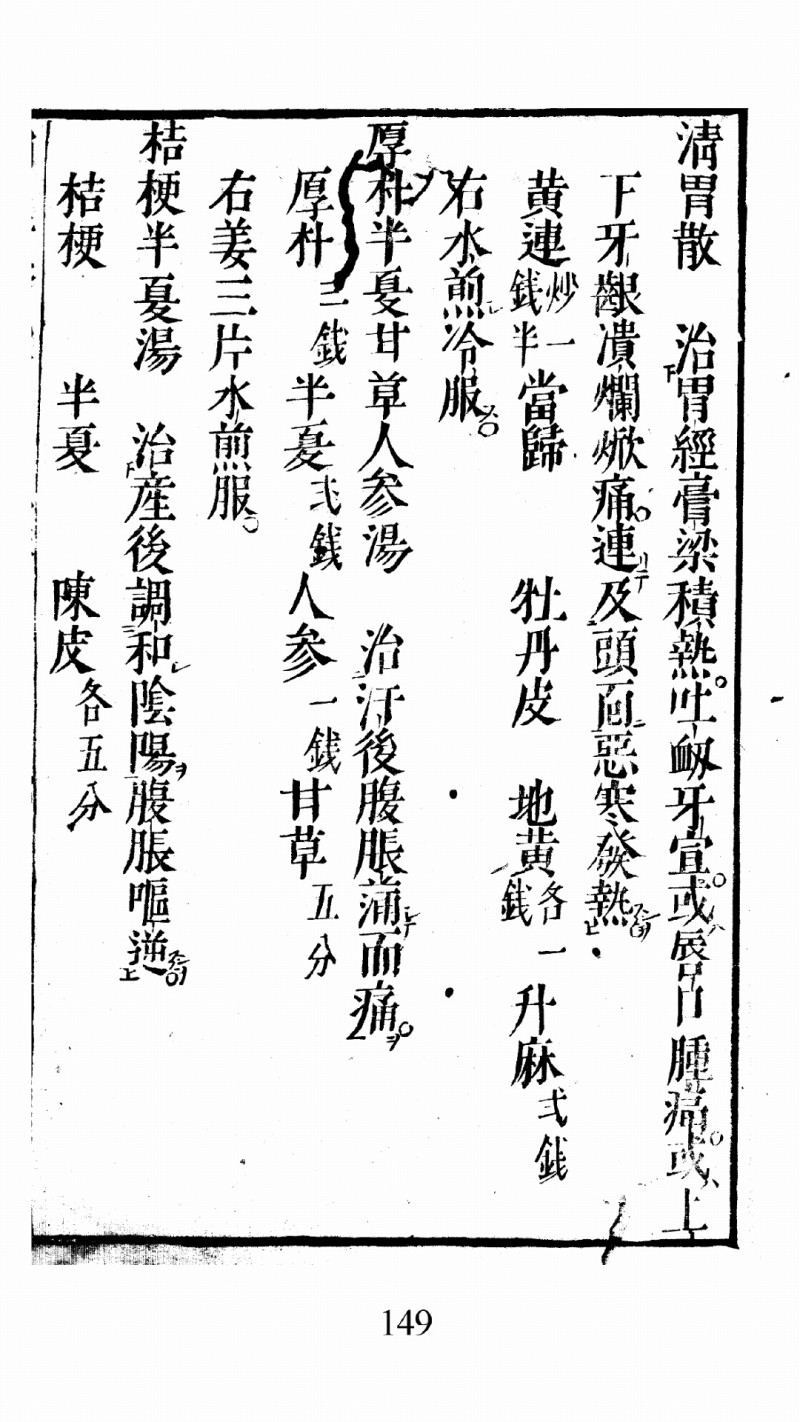 清胃散 治胃經膏梁積熱吐衂牙宣或唇口腫痛或上
下牙齦潰爛焮痛連及頭面惡寒發熱
黄連炒一錢半 當歸 牡丹皮 地黄各一錢 升麻弍錢
右水煎冷服
厚朴半夏甘草人参湯 治汗後腹脹滿而痛
厚朴三錢 半夏弍錢 人参一錢 甘草五分
右姜三片水煎服
桔梗半夏湯 治産後調和陰陽腹脹嘔逆
桔梗 半夏 陳皮各五分
149